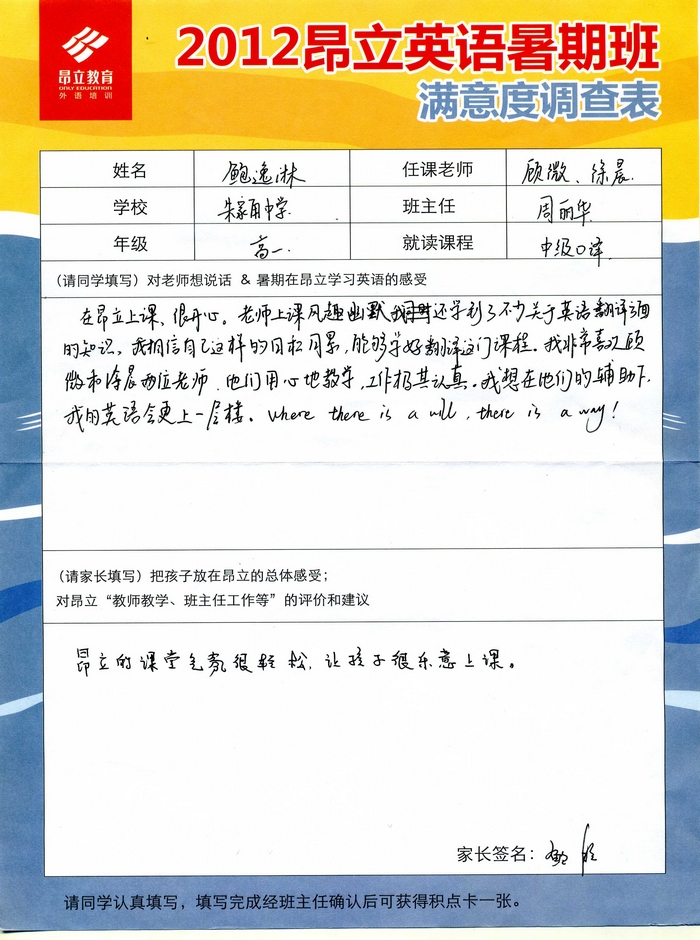 昂立教育
ONLY EDUCATION
外语培训
2012昂立英语暑期班
满意度调查表
姓名 鲍逸淋 任课老师 顾微、徐晨
学校 朱家角中学 班主任 周丽华
年级 高一 就读课程 中级口译
（请同学填写）对老师想说话 & 暑期在昂立学习英语的感受
在昂立上课、很开心。老师上课风趣幽默 还学到了不少关于英语翻译
的知识。我相信自己这样的日积月累，能够学好翻译这门课程。我非常喜欢顾
微和徐晨两位老师，他们用心地教学，工作极其认真。我想在他们的辅助下，
我的英语会更上一层楼。where there is a will, there is a way!
（请家长填写）把孩子放在昂立的总体感受；
对昂立“教师教学、班主任工作等”的评价和建议
昂立的课堂气氛很轻松，让孩子很乐意上课。
家长签名：
请同学认真填写，填写完成经班主任确认后可获得积点卡一张。